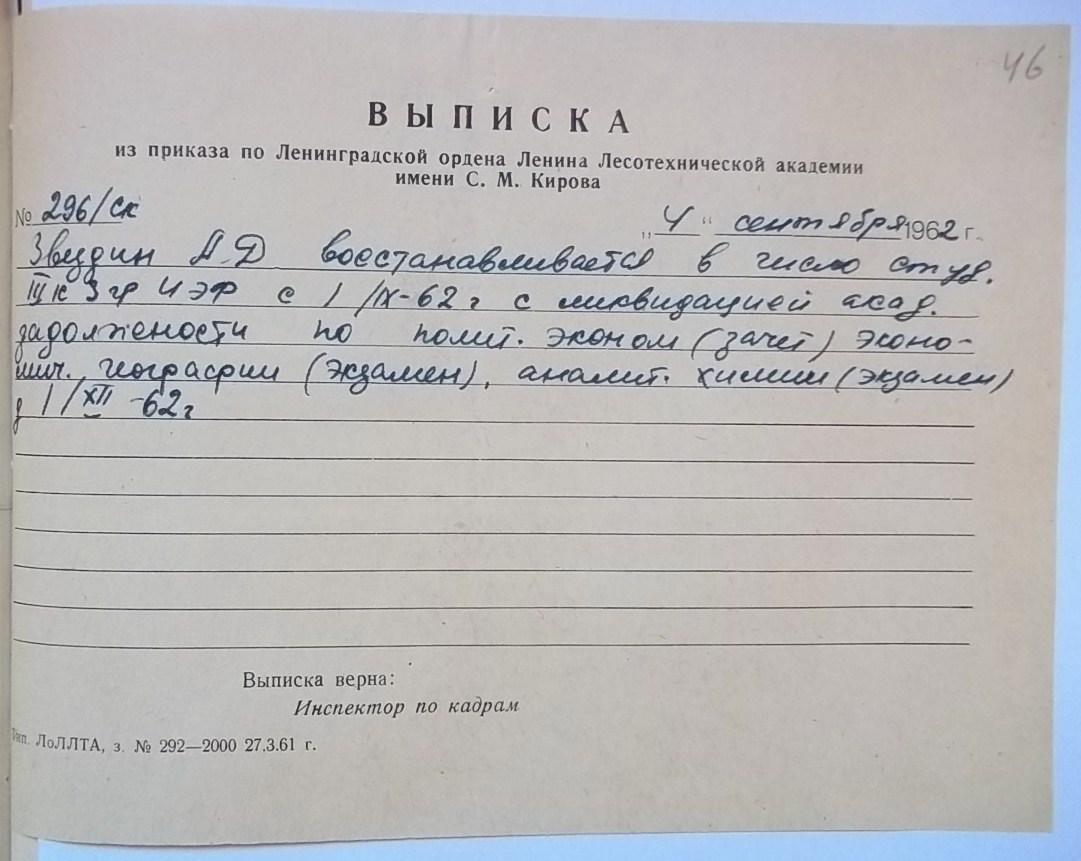 46
ВЫПИСКА
из приказа по Ленинградской ордена Ленина Лесотехнической академии
имени С. М. Кирова
№ 296/ск „4“ сентября 1962 г.
Звездин А. Д восстанавливается в число студ.
III к 3 гр ИЭФ с 1/IX-62 г с ликвидацией акад.
задолжености по полит. эконом (зачет) эконо-
мич. географии (экзамен), аналит. химии (экзамен)
1/XII-62 г
Выписка верна:
Инспектор по кадрам
Тип. ЛоЛЛТА, з. № 292—2000 27.3.61 г.